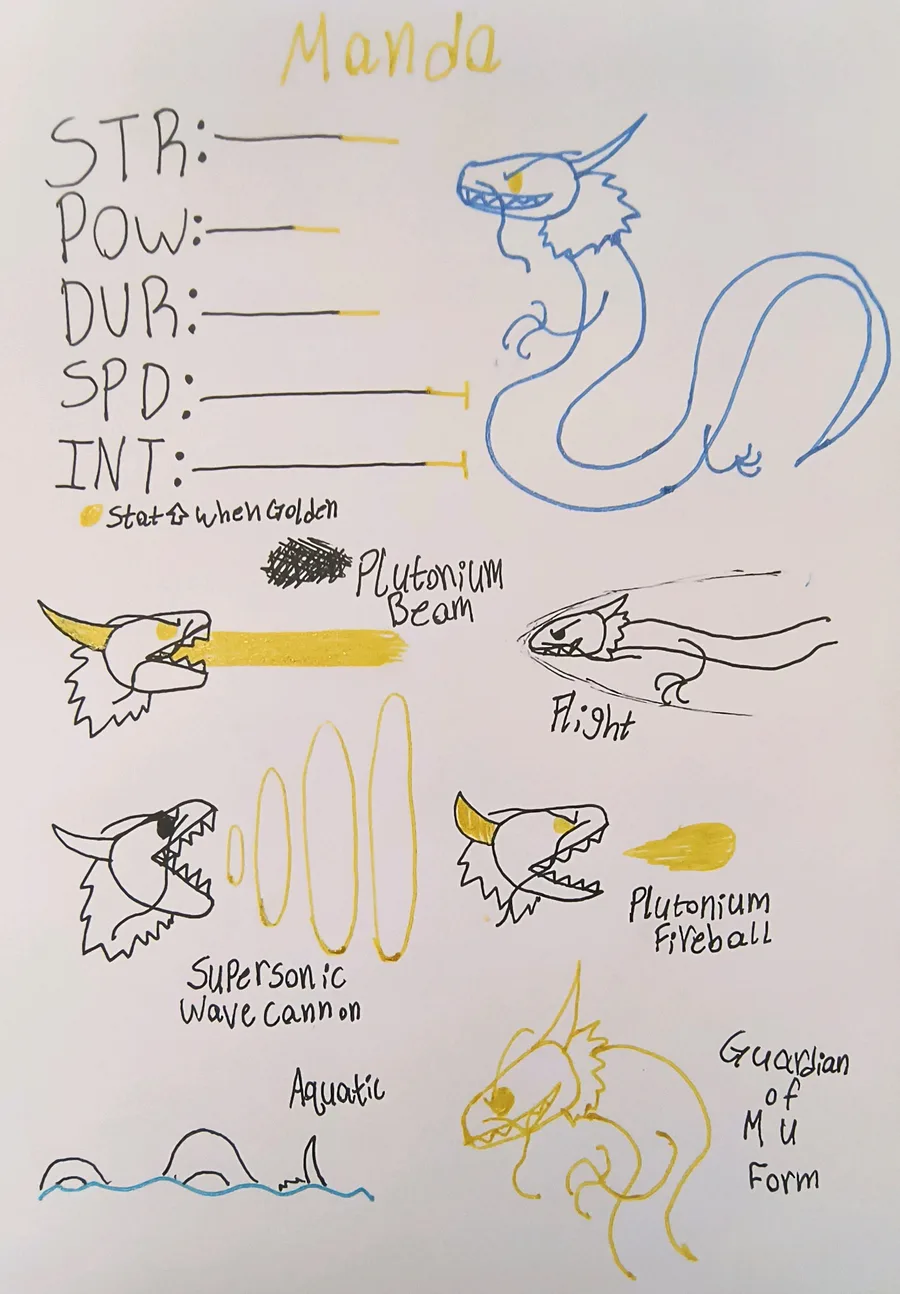 Manda
STR:
POW:
DUR:
SPD:
INT:
Stat⇧ when Golden
Plutonium
Beam
Flight
Supersonic
Wave Cannon
Plutonium
Fireball
Aquatic
Guardian
of
MU
Form